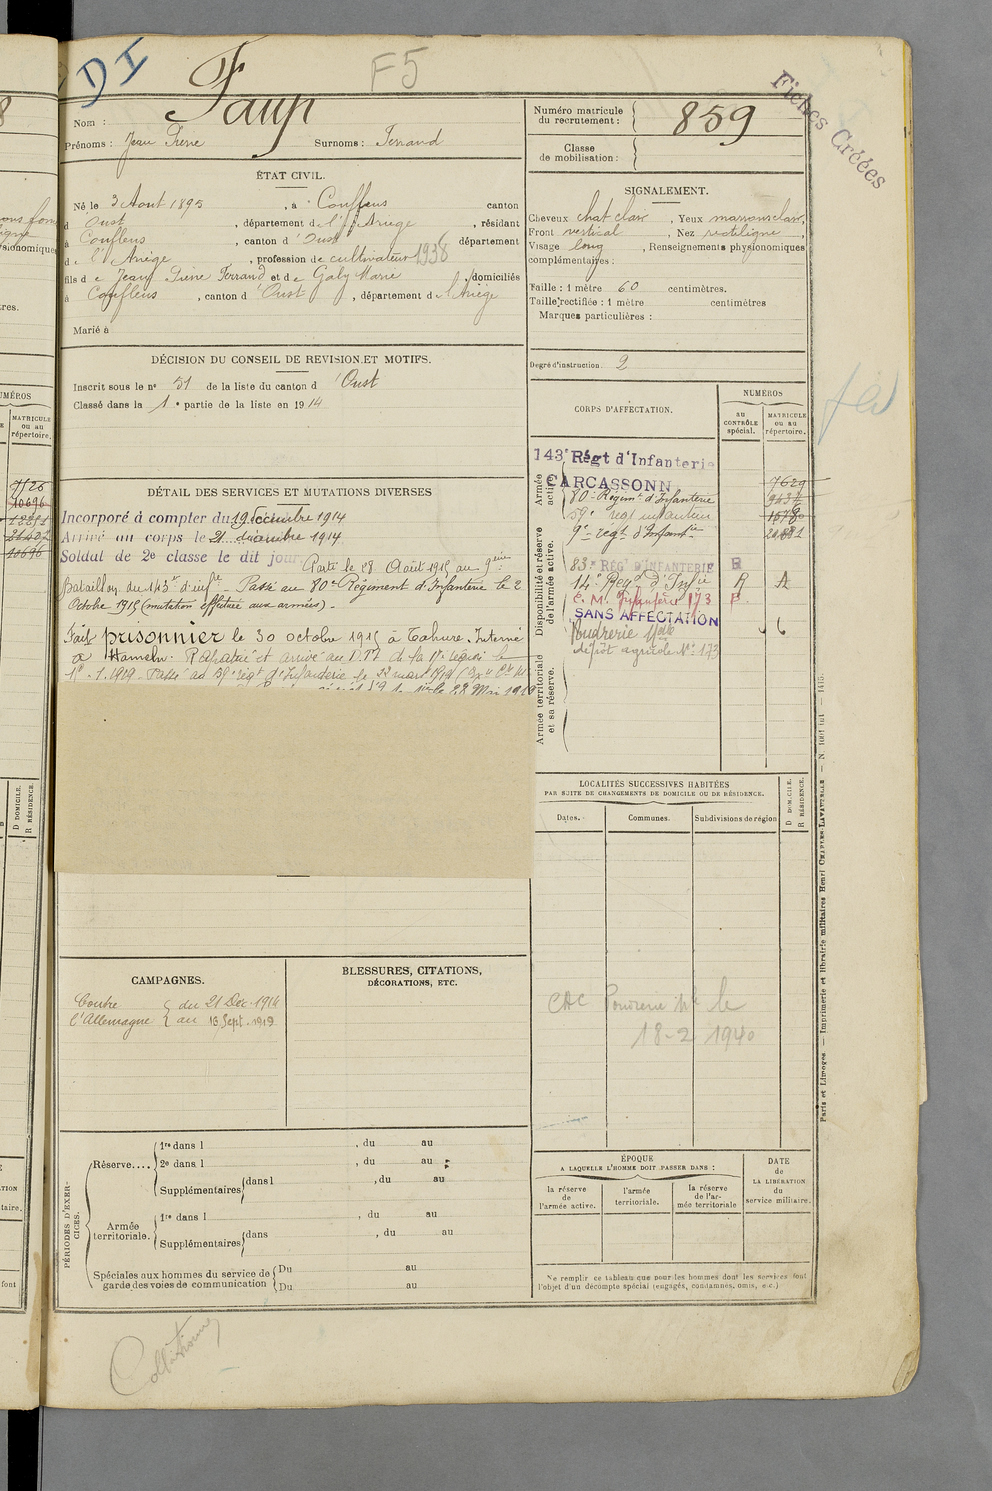 DI
F5
Fiches Créées
Nom : Faup
Prénoms : Jean Pierre Surnoms : Ferrand
Numéro matricule du recrutement : 859
Classe de mobilisation :
ÉTAT CIVIL.
Né le 3 Aout 1895, à Couflens canton
d'Oust, département de l'Ariège, résidant
à Couflens, canton d'Oust département
de l'Ariège, profession de cultivateur 1938
fils de Jean Pierre Ferrand et de Galy Marie, domiciliés
à Couflens, canton d'Oust, département de l'Ariège
Marié à
SIGNALEMENT.
Cheveux chat clair, Yeux marrons clair,
Front vertical, Nez rectiligne,
Visage long, Renseignements physionomiques
complémentaires :
Taille : 1 mètre 60 centimètres.
Taille rectifiée : 1 mètre centimètres
Marques particulières :
Degré d'instruction. 2
DÉCISION DU CONSEIL DE REVISION ET MOTIFS.
Inscrit sous le no 51 de la liste du canton d'Oust
Classé dans la 1e partie de la liste en 1914
DÉTAIL DES SERVICES ET MUTATIONS DIVERSES
Incorporé à compter du 19 décembre 1914
Arrivé au corps le 21 décembre 1914
Soldat de 2e classe le dit jour Parti le 28 Août 1915 au 9ème
Bataillon du 143e d'infie Passé au 80e Régiment d'Infanterie le 2
Octobre 1915 (mutation effectuée aux armées).
Fait prisonnier le 30 octobre 1915 à Tahure. Interné
à Hameln. Rapatrié et arrivé au D.
de la 17e région le
1er - 1. 1919. Passé au 59e régt d'Infanterie le mars 1919
le 22 Mai 1919
CORPS D'AFFECTATION.
NUMÉROS
au CONTRÔLE spécial.
MATRICULE ou au répertoire.
Armée active.
Disponibilité et réserve de l'armée active.
Armée territoriale et sa réserve.
143e Régt d'Infanterie
CARCASSONN 7629
80e Régimt d'Infanterie
59e régt infanterie
9e régt d'Infantie
83e RÉGt D'INFANTERIE R
14e Régt d'Infie R A
C. M. Infanterie 173 R.
SANS AFFECTATION
Poudrerie Nale
dépôt agricole No 173
LOCALITÉS SUCCESSIVES HABITÉES
PAR SUITE DE CHANGEMENTS DE DOMICILE OU DE RÉSIDENCE.
Dates. Communes. Subdivisions de région
D DOMICILE.
R RÉSIDENCE.
le
18-2 1940
CAMPAGNES.
Contre l'Allemagne { du 21 Déc. 1914
au 16 Sept. 1919
BLESSURES, CITATIONS,
DÉCORATIONS, ETC.
PÉRIODES D'EXERCICES.
Réserve....
1re dans l , du au
2e dans l , du au
Supplémentaires { dans l , du au
Armée territoriale.
1re dans l , du au
Supplémentaires { dans , du au
Spéciales aux hommes du service de garde des voies de communication { Du au
Du au
ÉPOQUE
A LAQUELLE L'HOMME DOIT PASSER DANS :
la réserve de l'armée active.
l'armée territoriale.
la réserve de l'armée territoriale
DATE de LA LIBÉRATION du service militaire.
Ne remplir ce tableau que pour les hommes dont les services font
l'objet d'un décompte spécial (engagés, condamnés, omis, etc.)
Paris et Limoges. — Imprimerie et librairie militaires Henri CHARLES-LAVAUZELLE